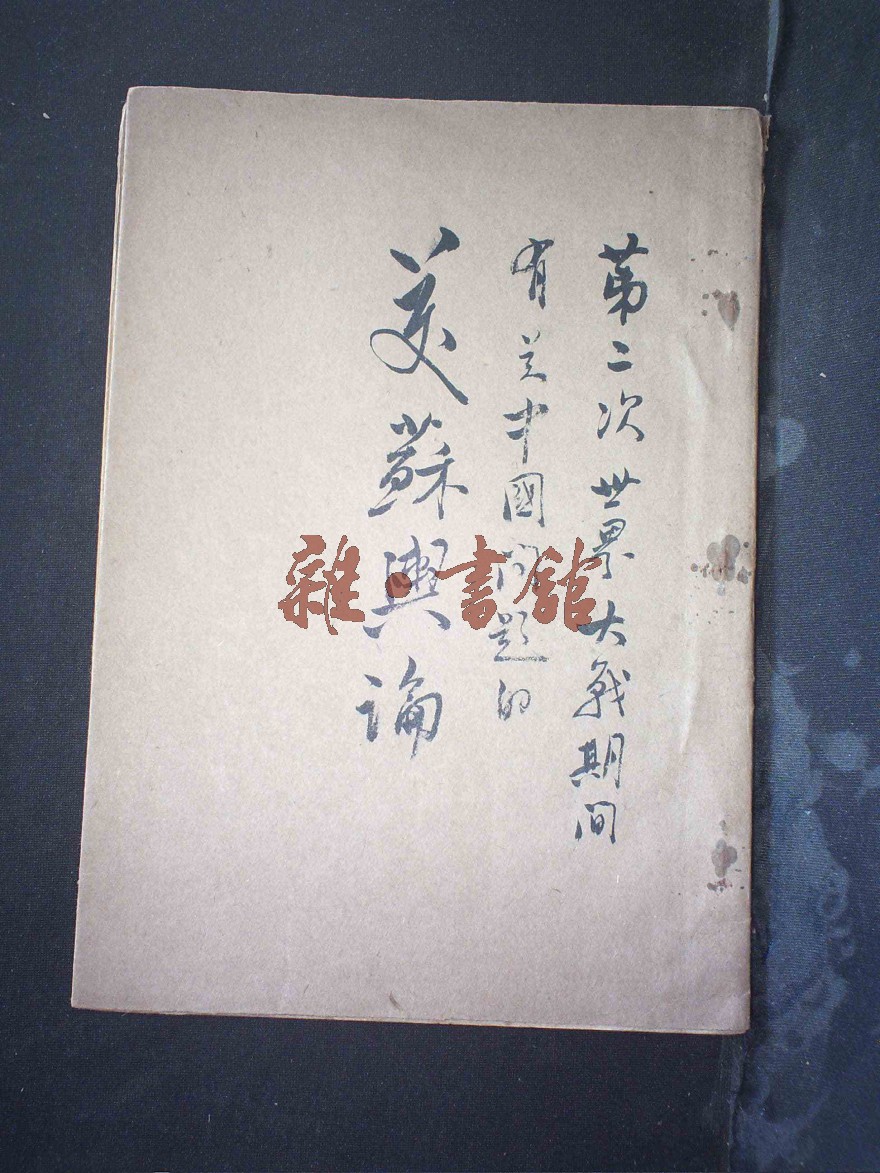 第二次世界大戰期间
有关中國问题的
美蘇輿論
雜·書館